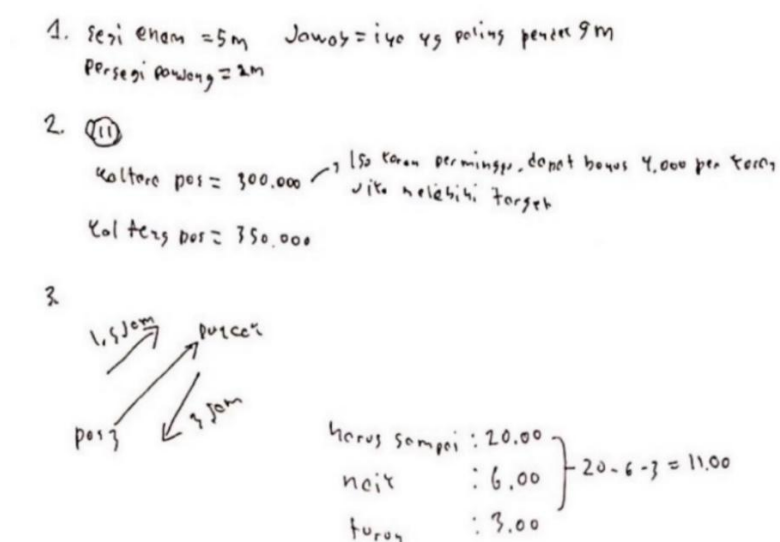 1. segi enam = 5m Jawab = iya yg paling pendek 9m
persegi panjang = 2m
2. 11
kaltara pos = 300.000 → 150 koran perminggu, dapat bonus 4.000 per koran
jika melebihi target
kalteng pos = 350.000
3.
1,5 Jam puncak
pos 3 3 Jam
harus sampai : 20.00
naik : 6.00 20-6-3 = 11.00
turun : 3.00